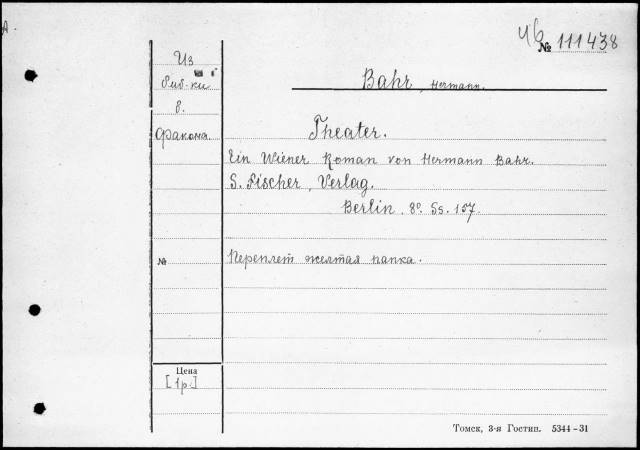 А.
Чб
№ 111438
Из
биб-ки
в.
Факона.
Bahr, Hermann.
Theater.
Ein Wiener Roman von Hermann Bahr.
S. Fischer, Verlag.
Berlin. 8º. Ss. 157.
№
Переплет желтая папка.
Цена
[1р.]
Томск, 3-я Гостип. 5344-31